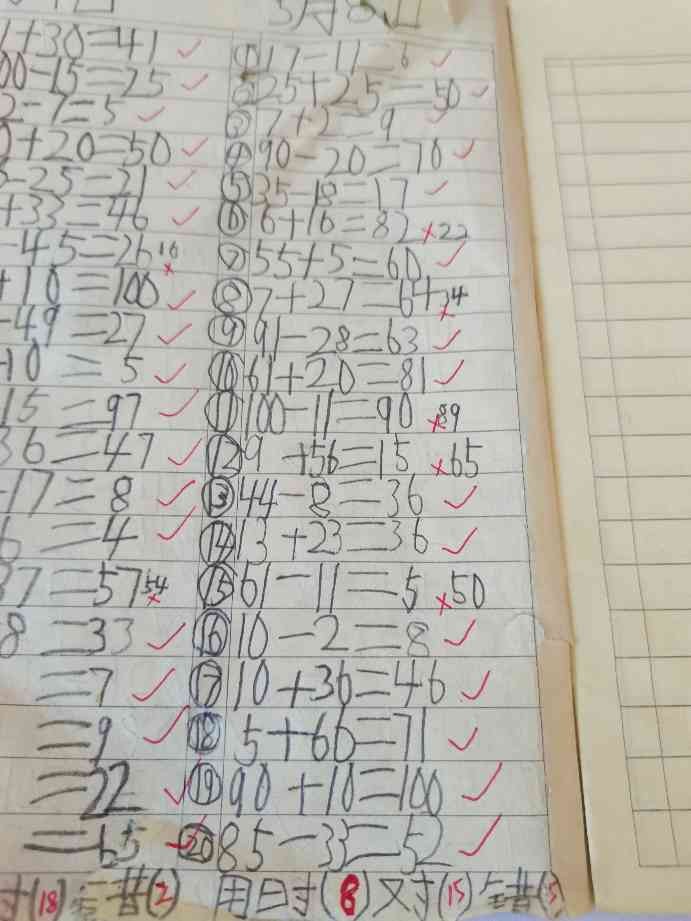 5月8日
1+30=41 ✓
00-15=25 ✓
2-7=5 ✓
0+20=50 ✓
-25=21 ✓
+33=46 ✓
-45=26 16 ×
+10=100 ✓
-49=27 ✓
-10=5 ✓
15=97 ✓
36=47 ✓
-17=8 ✓
6=4 ✓
37=57 54 ×
8=33 ✓
=7 ✓
=9 ✓
=22 ✓
=65 ✓
对(18)错(2)
①17-11=6 ✓
②25+25=50 ✓
③7+2=9 ✓
④90-20=70 ✓
⑤35-18=17 ✓
⑥6+16=82 ×22
⑦55+5=60 ✓
⑧7+27=64 ×34
⑨91-28=63 ✓
⑩61+20=81 ✓
⑪100-11=90 ×89
⑫9+56=15 ×65
⑬44-8=36 ✓
⑭13+23=36 ✓
⑮61-11=5 ×50
⑯10-2=8 ✓
⑰10+36=46 ✓
⑱5+66=71 ✓
⑲90+10=100 ✓
⑳85-33=52 ✓
用时(8)对(15)错(5)